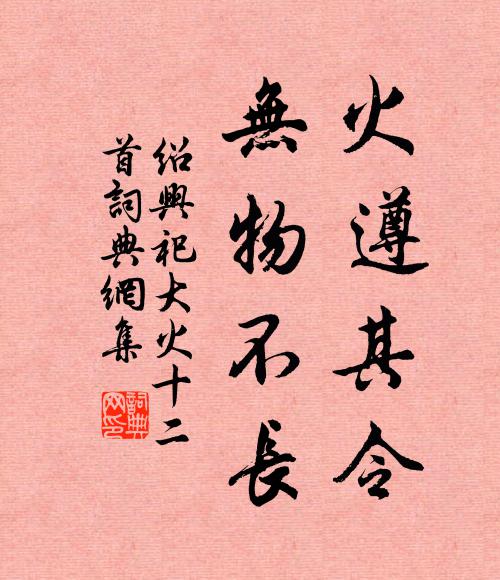 火遵其令
無物不長
紹興祀大火十二
首詞典網集
詞典
网印